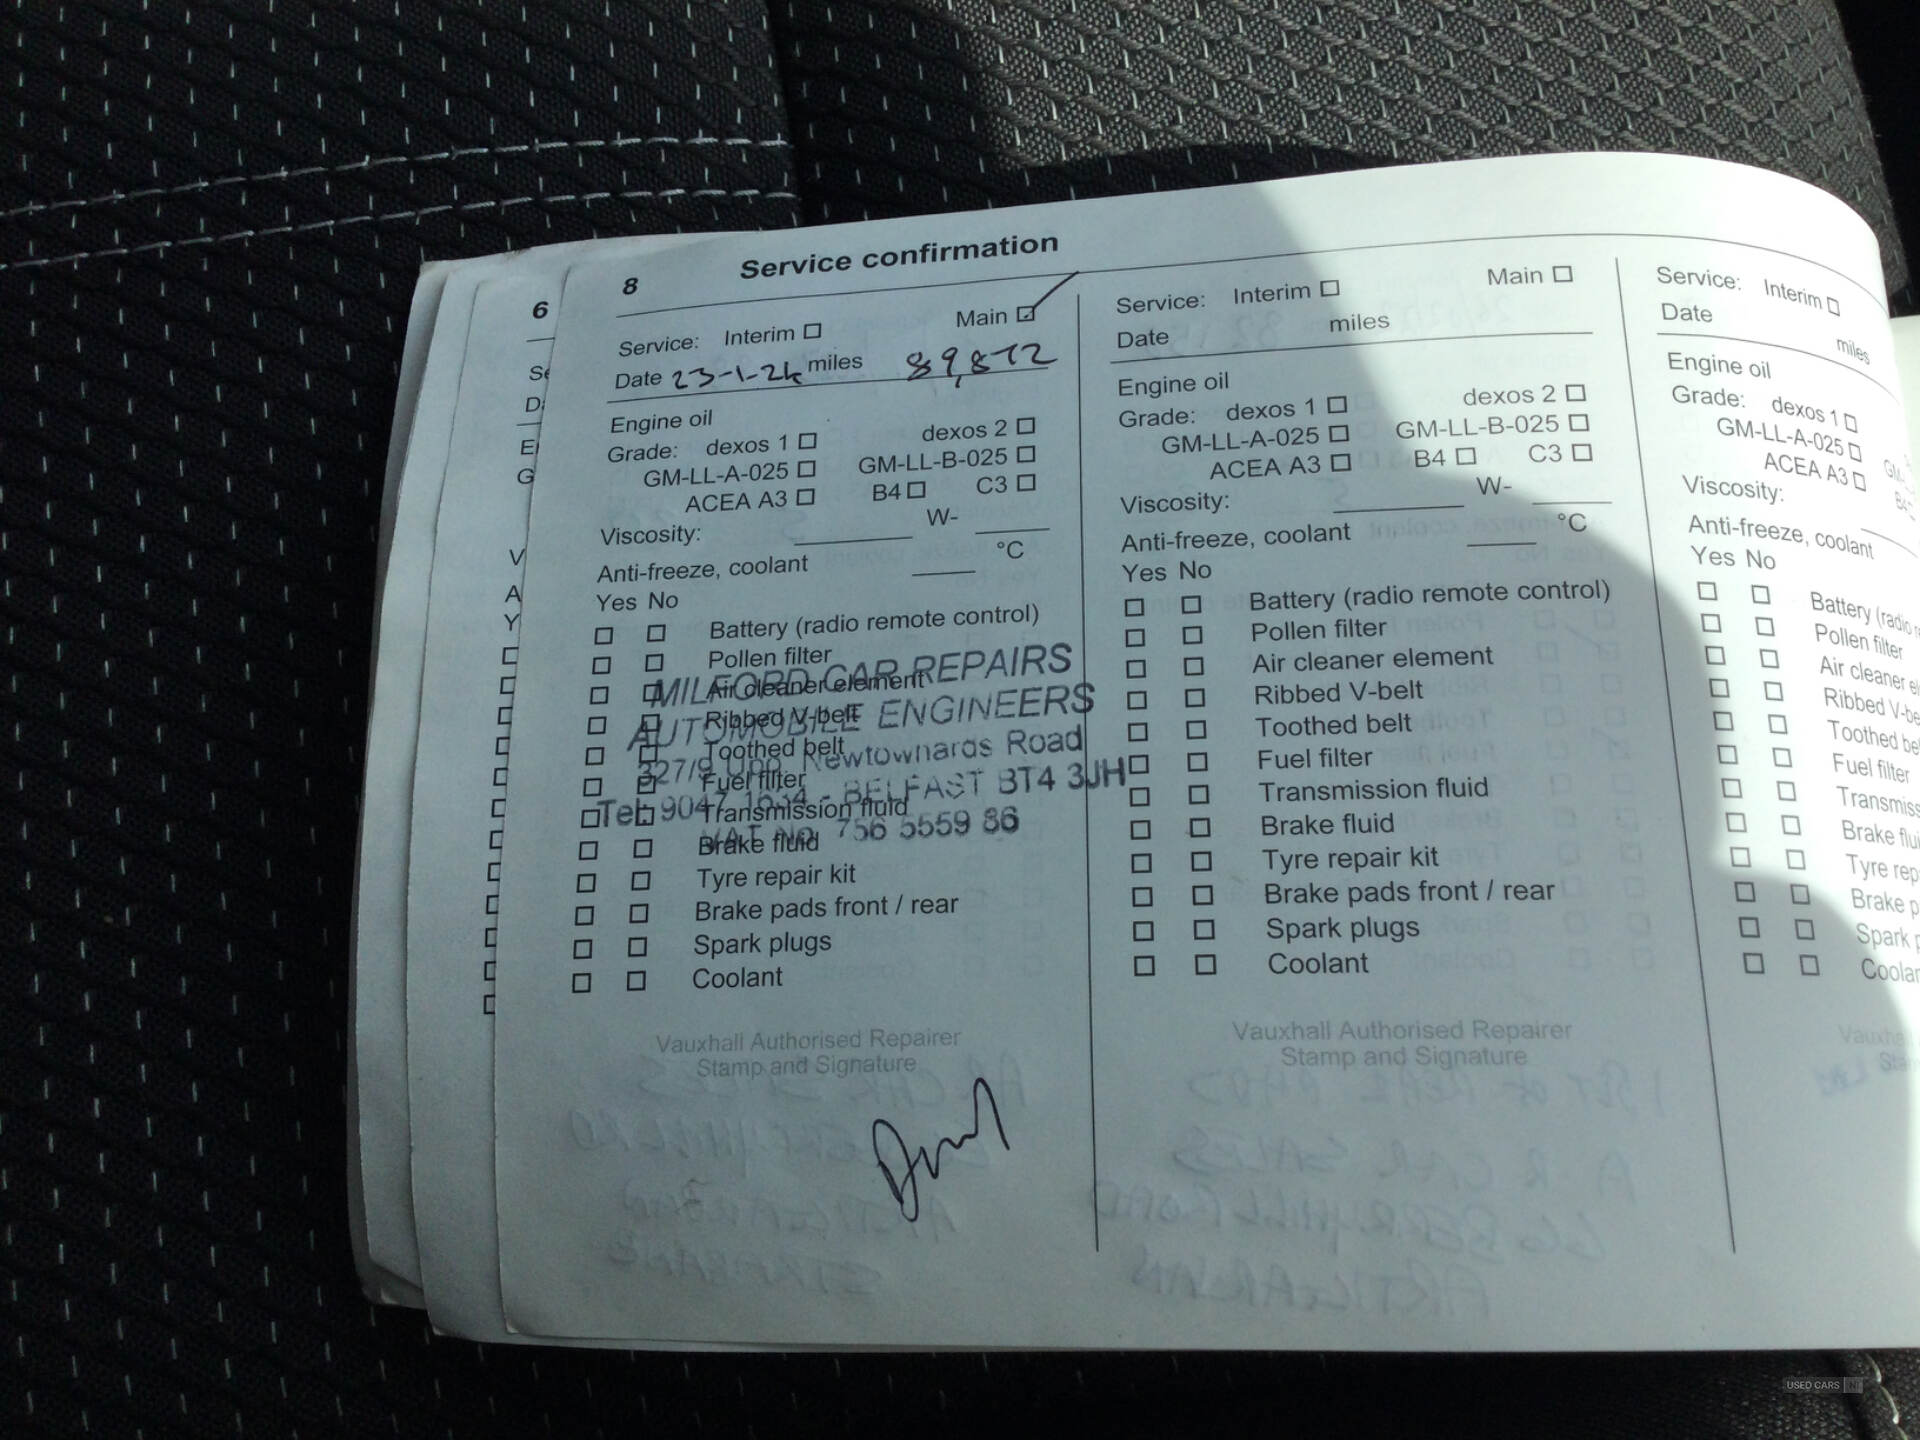 8 Service confirmation
Service: Interim Main
Date 23-1-24 miles 89,872
Engine oil
Grade: dexos 1 dexos 2
GM-LL-A-025 GM-LL-B-025
ACEA A3 B4 C3
Viscosity: W-
Anti-freeze, coolant °C
Yes No
Battery (radio remote control)
Pollen filter
Air cleaner element
Ribbed V-belt
Toothed belt
Fuel filter
Transmission fluid
Brake fluid
Tyre repair kit
Brake pads front / rear
Spark plugs
Coolant
MILFORD CAR REPAIRS
AUTOMOBILE ENGINEERS
327/9 Upp. Newtownards Road
Tel: 9047 1634 - BELFAST BT4 3JH
VAT No. 756 5559 86
Vauxhall Authorised Repairer
Stamp and Signature
Service: Interim Main
Date miles
Engine oil
Grade: dexos 1 dexos 2
GM-LL-A-025 GM-LL-B-025
ACEA A3 B4 C3
Viscosity: W-
Anti-freeze, coolant °C
Yes No
Battery (radio remote control)
Pollen filter
Air cleaner element
Ribbed V-belt
Toothed belt
Fuel filter
Transmission fluid
Brake fluid
Tyre repair kit
Brake pads front / rear
Spark plugs
Coolant
Vauxhall Authorised Repairer
Stamp and Signature
Service: Interim
Date miles
Engine oil
Grade: dexos 1
GM-LL-A-025
ACEA A3
Viscosity:
Anti-freeze, coolant
Yes No
Battery (radio
Pollen filter
Air cleaner
Ribbed V-be
Toothed be
Fuel filter
Transmiss
Brake flui
Tyre rep
Brake p
Spark
Coolan
6
V
A
Y
USED CARS NI